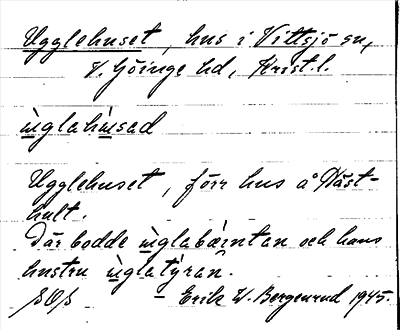 Ugglehuset, hus i Vittsjö sn,
V. Göinge hd, Krist. l.
ùglahúsad
Ugglehuset, förr hus å Väst-
hult.
Där bodde ùglabæ̀intan och hans
hustru ùglatýran.
SOS – Erik W. Bergenrud 1945.